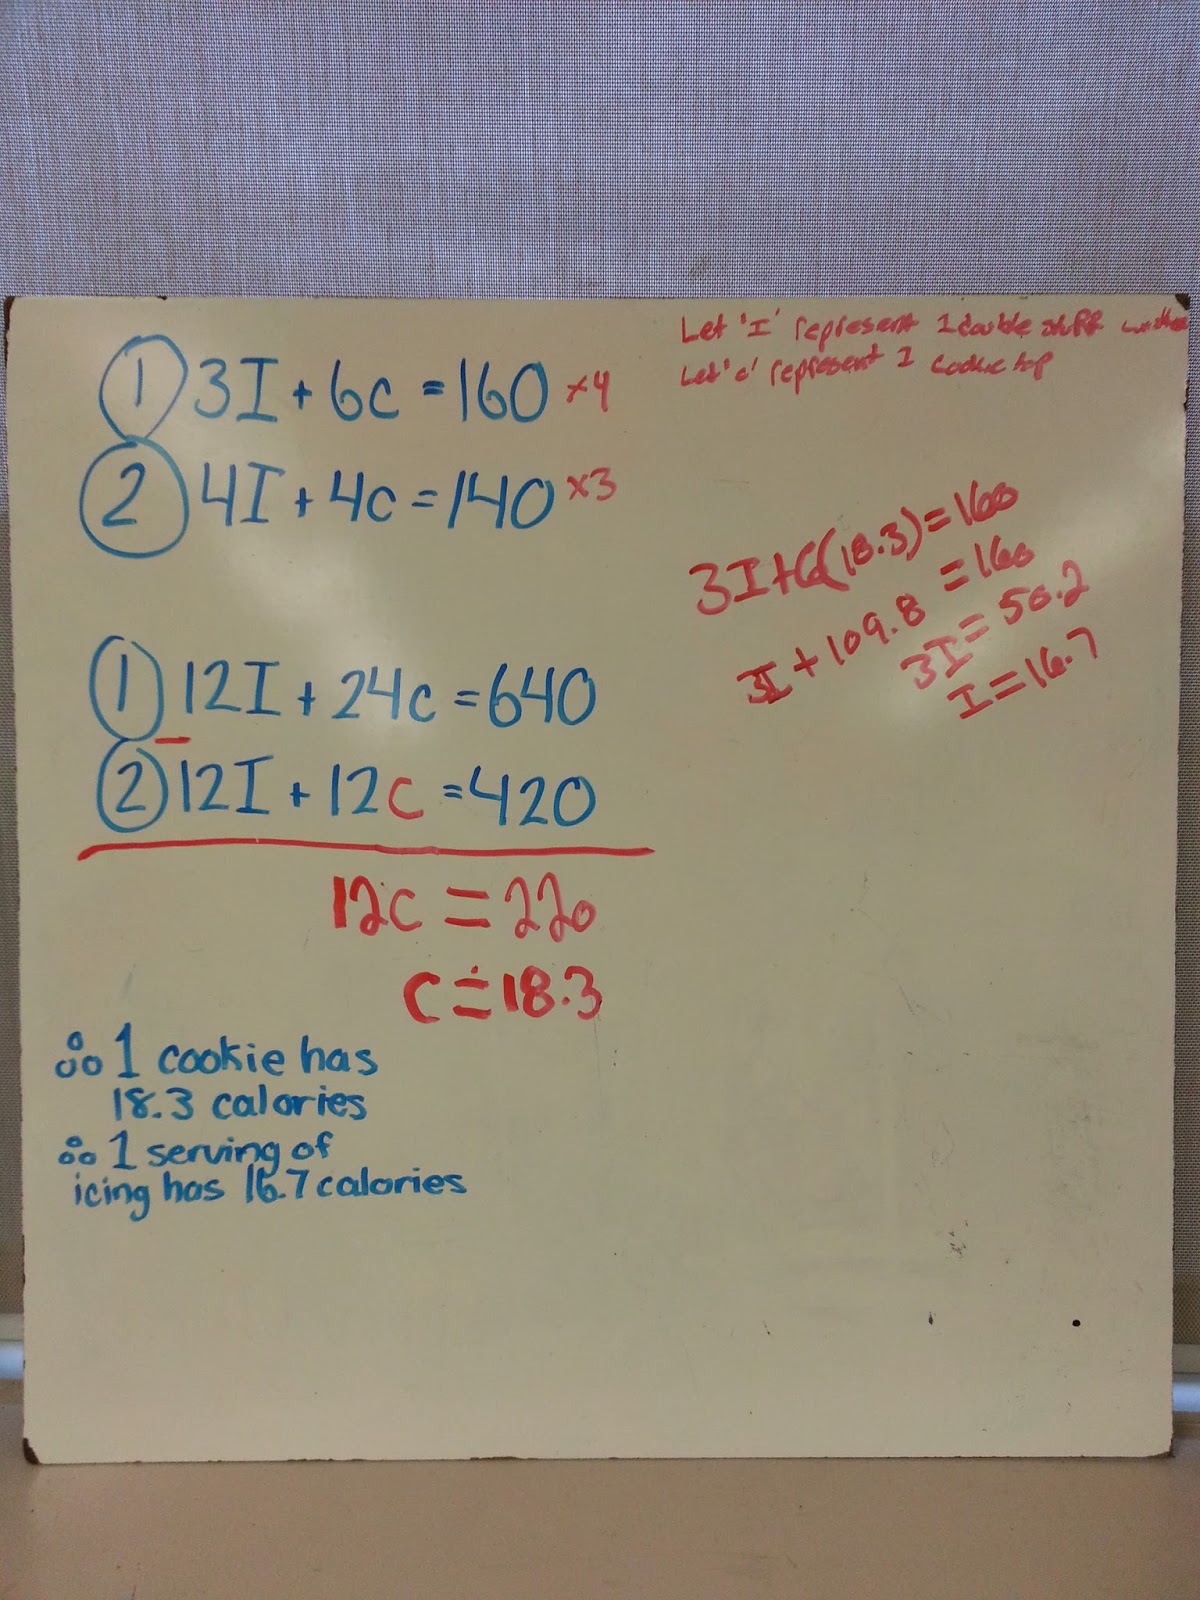 Let 'I' represent 1 double stuff
Let 'c' represent 1 cookie top
① 3I + 6c = 160 ×4
② 4I + 4c = 140 ×3
3I+6(18.3)=160
3I + 109.8 = 160
3I = 50.2
I = 16.7
① 12I + 24c = 640
− ② 12I + 12c = 420
12c = 220
c ≐ 18.3
∴ 1 cookie has
18.3 calories
∴ 1 serving of
icing has 16.7 calories